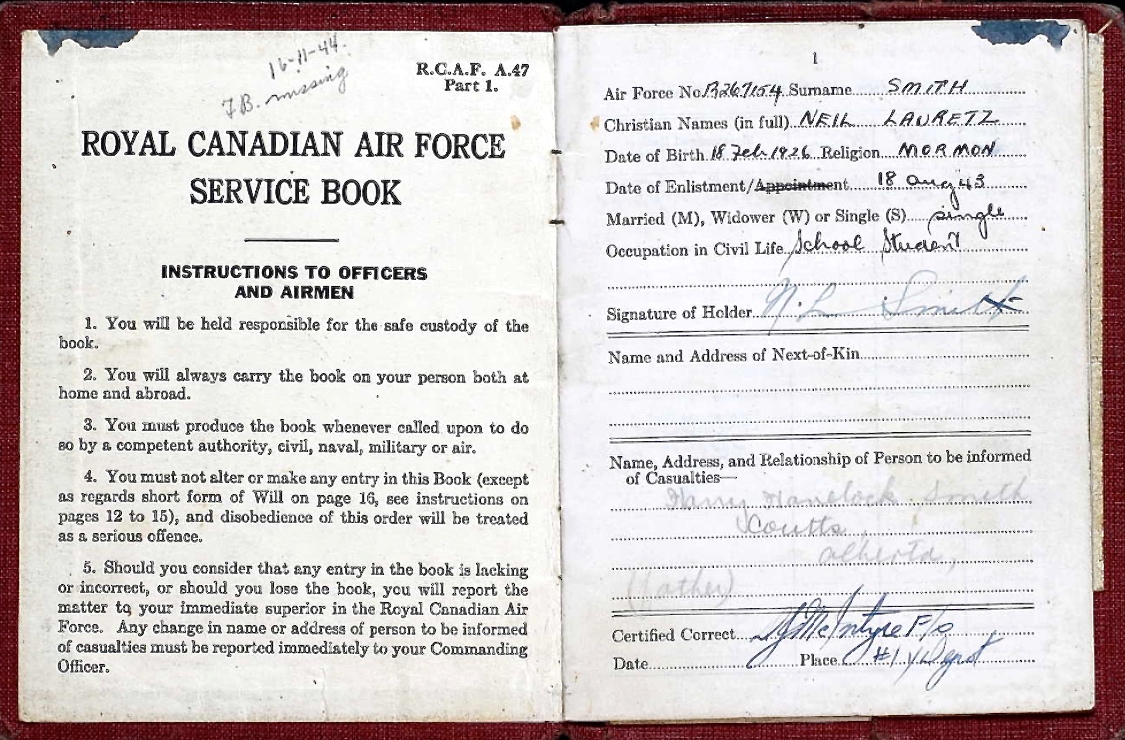 16-11-44.
F.B. missing
R.C.A.F. A.47
Part 1.
ROYAL CANADIAN AIR FORCE
SERVICE BOOK
INSTRUCTIONS TO OFFICERS
AND AIRMEN
1. You will be held responsible for the safe custody of the
book.
2. You will always carry the book on your person both at
home and abroad.
3. You must produce the book whenever called upon to do
so by a competent authority, civil, naval, military or air.
4. You must not alter or make any entry in this Book (except
as regards short form of Will on page 16, see instructions on
pages 12 to 15), and disobedience of this order will be treated
as a serious offence.
5. Should you consider that any entry in the book is lacking
or incorrect, or should you lose the book, you will report the
matter to your immediate superior in the Royal Canadian Air
Force. Any change in name or address of person to be informed
of casualties must be reported immediately to your Commanding
Officer.
1
Air Force No. R267154 Surname SMITH
Christian Names (in full) NEIL LAURETZ
Date of Birth 18 Feb 1926 Religion MORMON
Date of Enlistment/Appointment 18 Aug 43
Married (M), Widower (W) or Single (S) single
Occupation in Civil Life School Student
Signature of Holder N. L. Smith
Name and Address of Next-of-Kin
Name, Address, and Relationship of Person to be informed
of Casualties—
Harry Havelock Smith
Coutts
Alberta,
(father)
Certified Correct McIntyre F/O
Date Place #1 Y Depot